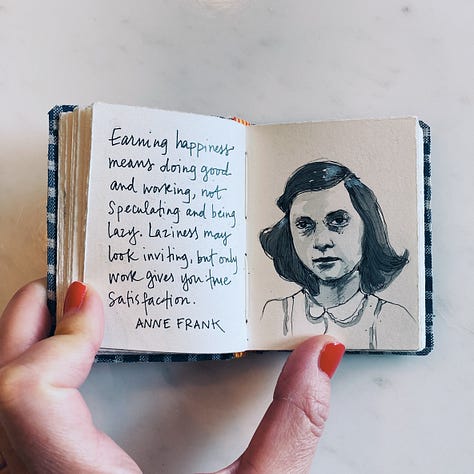 Earning happiness
means doing good
and working, not
Speculating and being
lazy. Laziness may
look inviting, but only
work gives you true
satisfaction.
ANNE FRANK